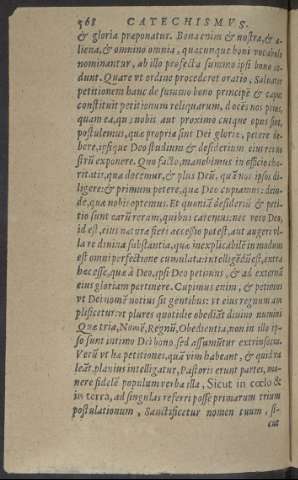 568 CATECHISMVS.
& gloria præponatur. Bona enim & nostra, & a-
liena, & omnino omnia, quacunque boni vocabulo
nominantur, ab illo profecta summo ipsi bono ce-
dunt. Quare vt ordine procederet oratio, Saluator
petitionem hanc de summo bono principē & caput
constituit petitionum reliquarum, docēs nos prius,
quam ea, quæ nobis aut proximo cuique opus sint,
postulemus, quæ propria sint Dei gloriæ, petere de-
bere, ipsique Deo studium & desiderium eius rei no-
strū exponere. Quo facto, manebimus in officio cha-
ritatis, qua docemur, & plus Deū, quā nos ipsos di-
ligere: & primum petere, quæ Deo cupiamus: dein-
de, quæ nobis optemus. Et quoniā desideriū & peti-
tio sunt earū rerum, quibus caremus: nec vero Deo,
id est, eius naturæ fieri accessio potest, aut augeri vl-
la re diuina substantia, quæ inexplicabilē in modum
est omni perfectione cumulata: intelligēdū est, extra
hæc esse, quæ à Deo, ipsi Deo petimus, & ad externā
eius gloriam pertinere. Cupimus enim, & petimus
vt Dei nomē notius sit gentibus: vt eius regnum am-
plificetur: vt plures quotidie obediāt diuino numini
Quæ tria, Nomē, Regnū, Obedientia, non in illo ip-
so sunt intimo Dei bono, sed assumūtur extrinsecus.
Verū vt hæ petitiones, quā vim habeant, & quid va
leāt, planius intelligatur, Pastoris erunt partes, mo-
nere fidelē populum verba illa, Sicut in cœlo &
in terra, ad singulas referri posse primarum trium
postulationum, Sanctificetur nomen tuum, si-
cut